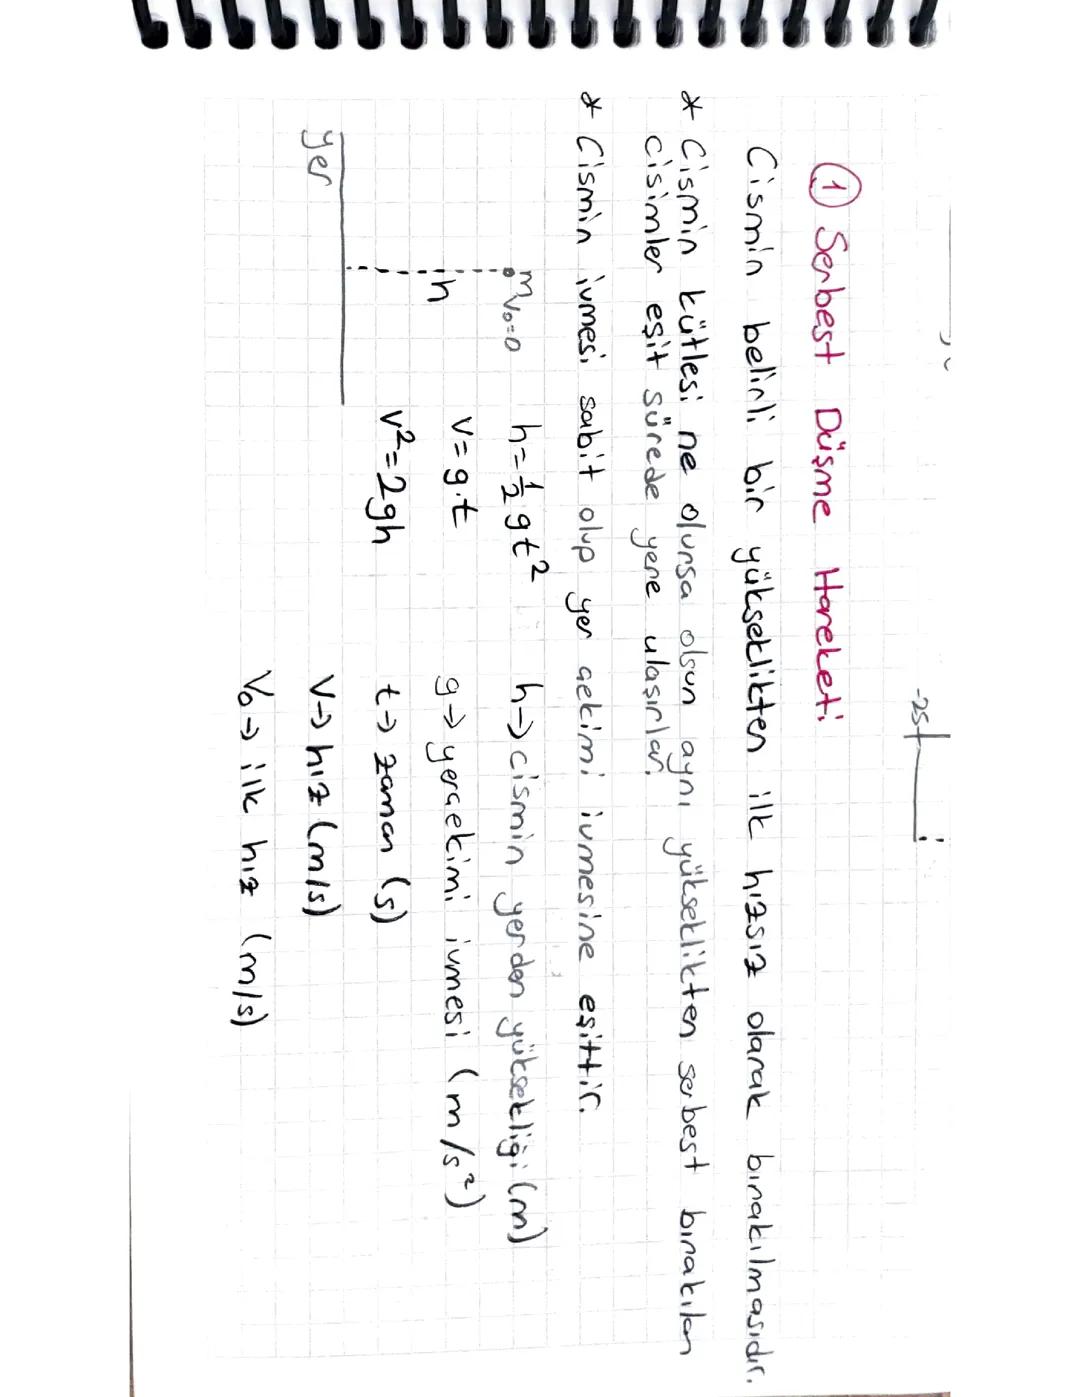 -25
① Serbest Düşme Hareketi
Cismin belirli bir yükseklikten ilk hızsız olarak bırakılmasıdır.
* Cismin kütlesi ne olursa olsun aynı yükseklikten serbest bırakılan
cisimler eşit sürede yere ulaşırlar.
* Cismin ivmesi sabit olup yer çekimi ivmesine eşittir.
m V₀=0
h
yer
h=½gt²
V=g.t
V²=2gh
h→cismin yerden yüksekliği (m)
g→yerçekimi ivmesi (m/s²)
t→zaman (s)
V→hız (m/s)
V₀→ilk hız (m/s)